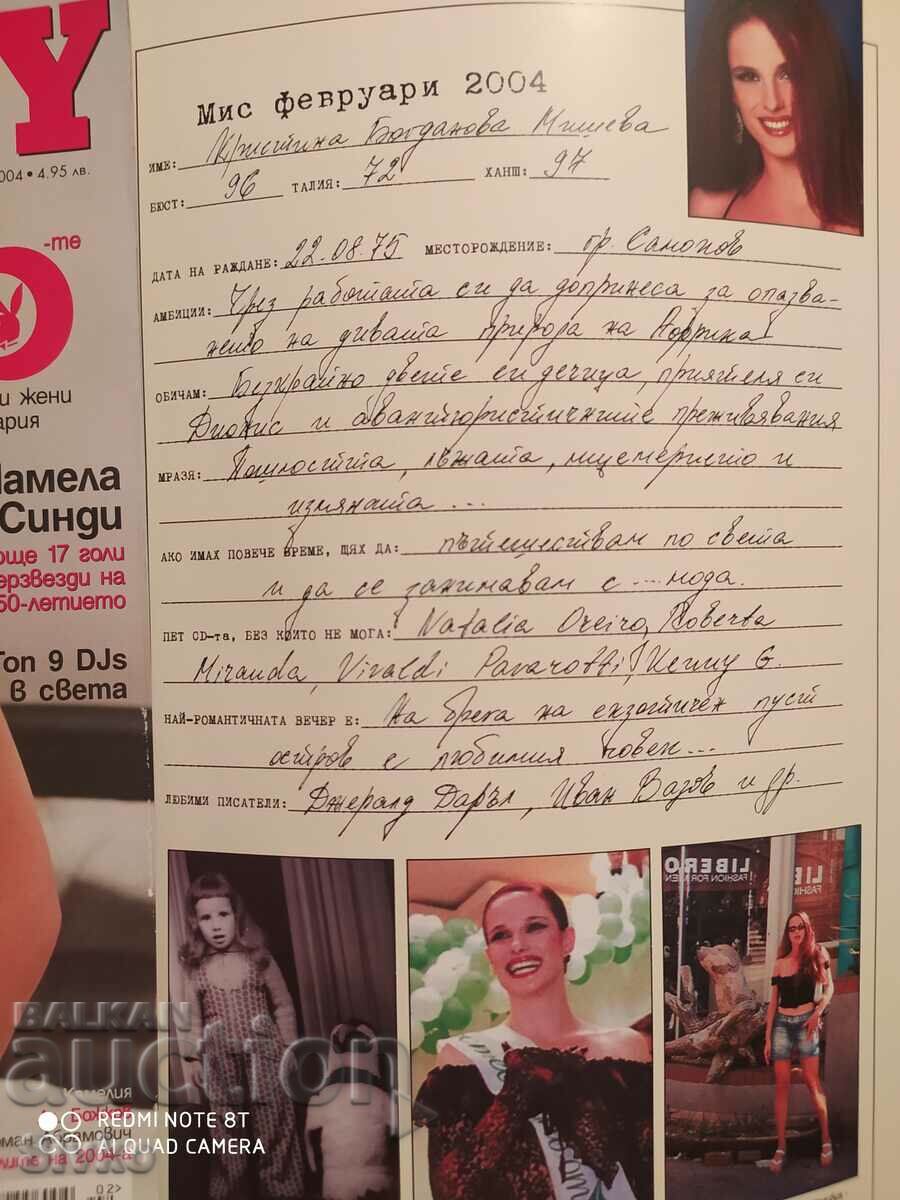 Y
004 • 4.95 лв.
-те
и жени
ария
Памела
Синди
още 17 голи
50-летието
Топ 9 DJs
в света
Камелия
2004-а
02>
Мис февруари 2004
ИМЕ: Кристина Богданова Мишева
БЮСТ: 96 ТАЛИЯ: 72 ХАНШ: 97
ДАТА НА РАЖДАНЕ: 22.08.75 МЕСТОРОЖДЕНИЕ: гр. Самоков
АМБИЦИИ: Чрез работата си да допринеса за опазва-
нето на дивата природа на Африка!
ОБИЧАМ: Безкрайно двете си дечица, приятеля си
Дионис и авантюристичните преживявания
МРАЗЯ: Пошлостта, лъжата, лицемерието и
измяната...
АКО ИМАХ ПОВЕЧЕ ВРЕМЕ, ЩЯХ ДА: пътешествам по света
и да се занимавам с ... мода.
ПЕТ CD-та, БЕЗ КОИТО НЕ МОГА: Natalia Oreiro, Roberta
Miranda, Vivaldi Pavarotti, Kenny G.
НАЙ-РОМАНТИЧНАТА ВЕЧЕР Е: На брега на екзотичен пуст
остров с любимия човек...
ЛЮБИМИ ПИСАТЕЛИ: Джералд Даръл, Иван Вазов и др.
LIBERO
FASHION FOR MEN
BALKAN
auction
REDMI NOTE 8T
AI QUAD CAMERA